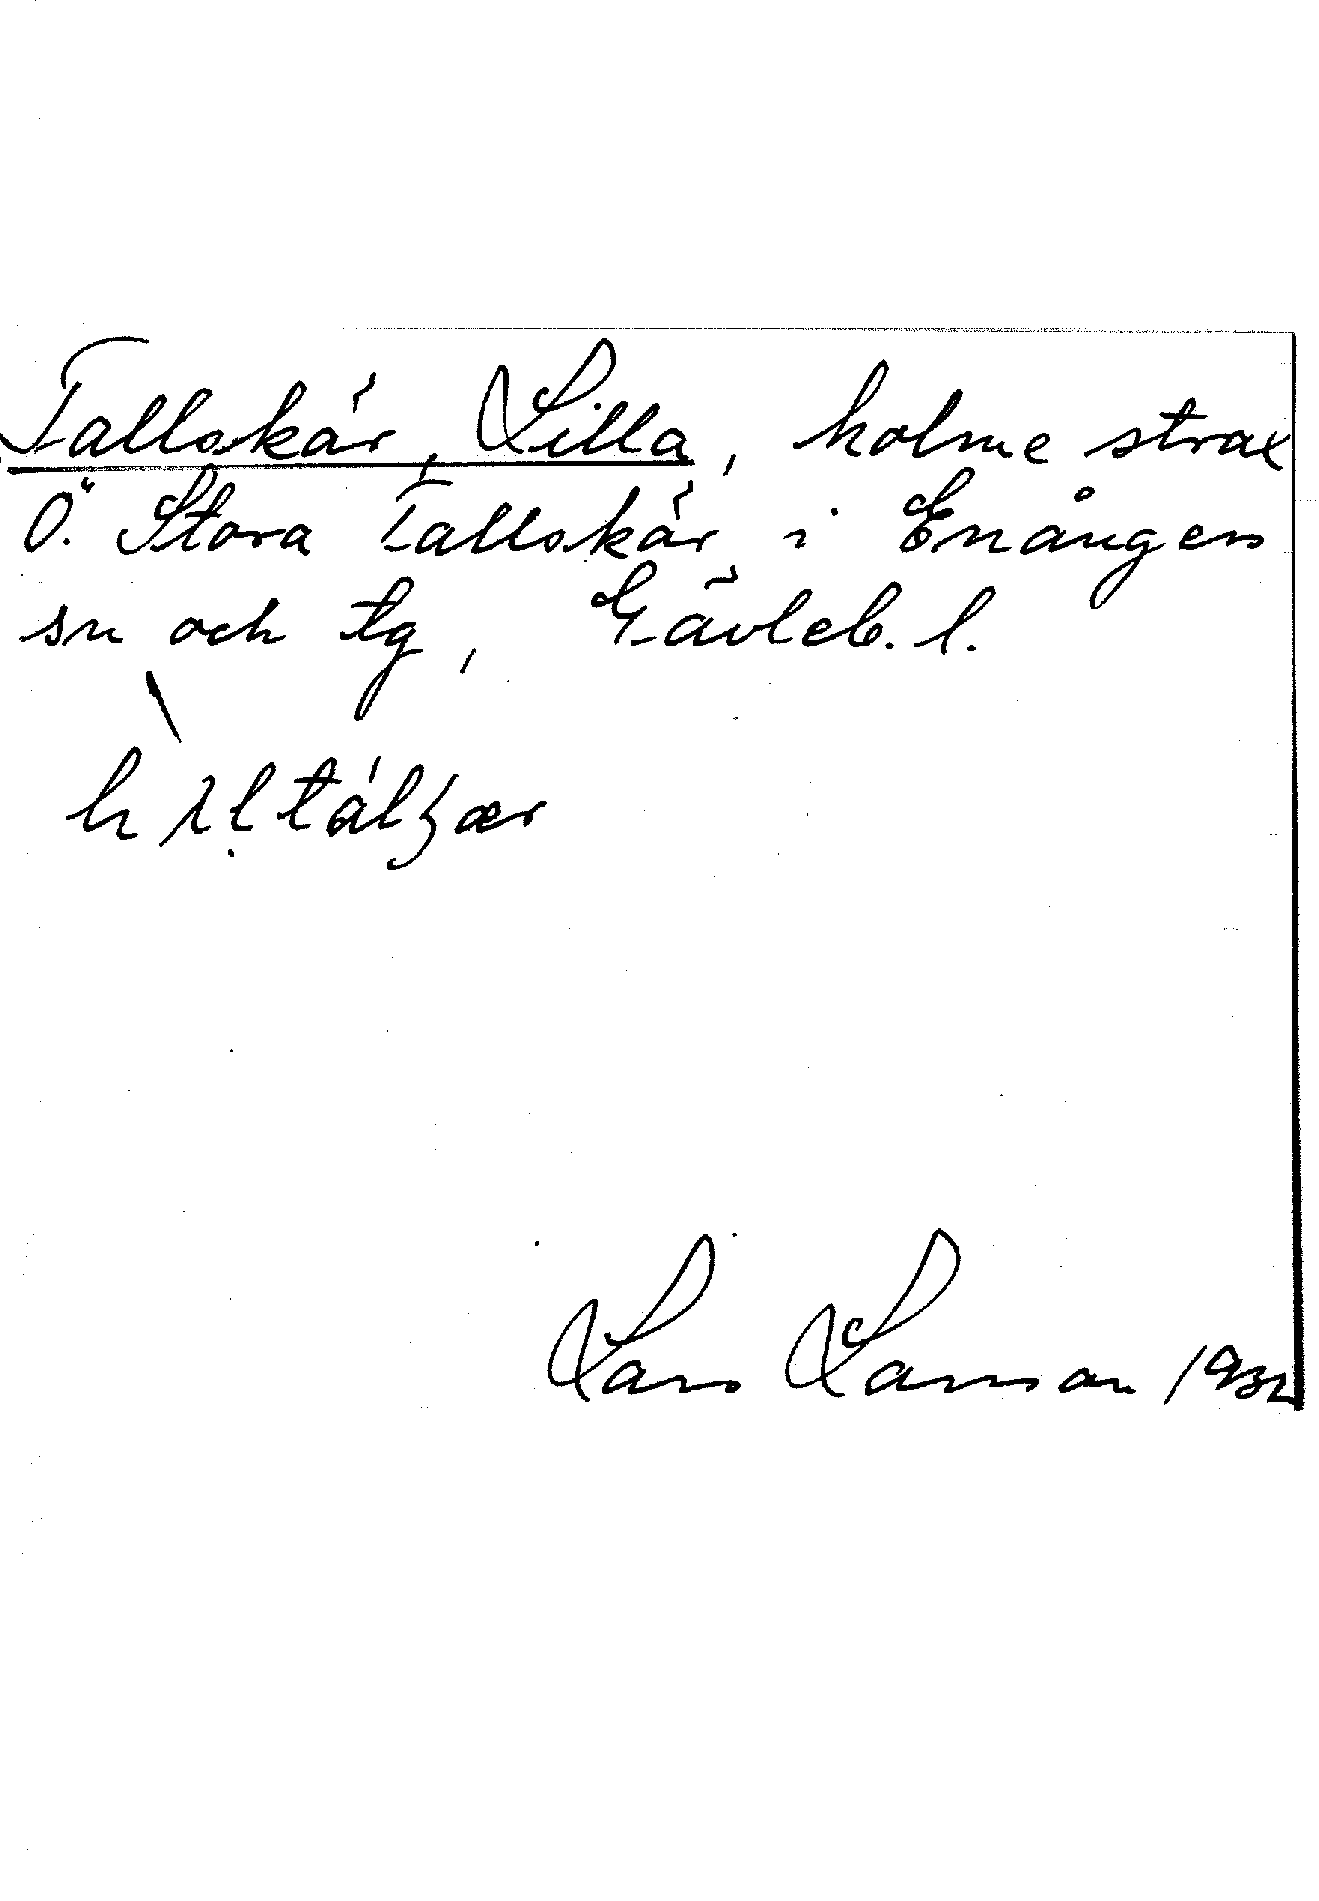 Tallskär, Lilla, holme strax
Ö. Stora Tallskär i Enångers
sn och tg, Gävleb. l.
Lars Larsson 1932